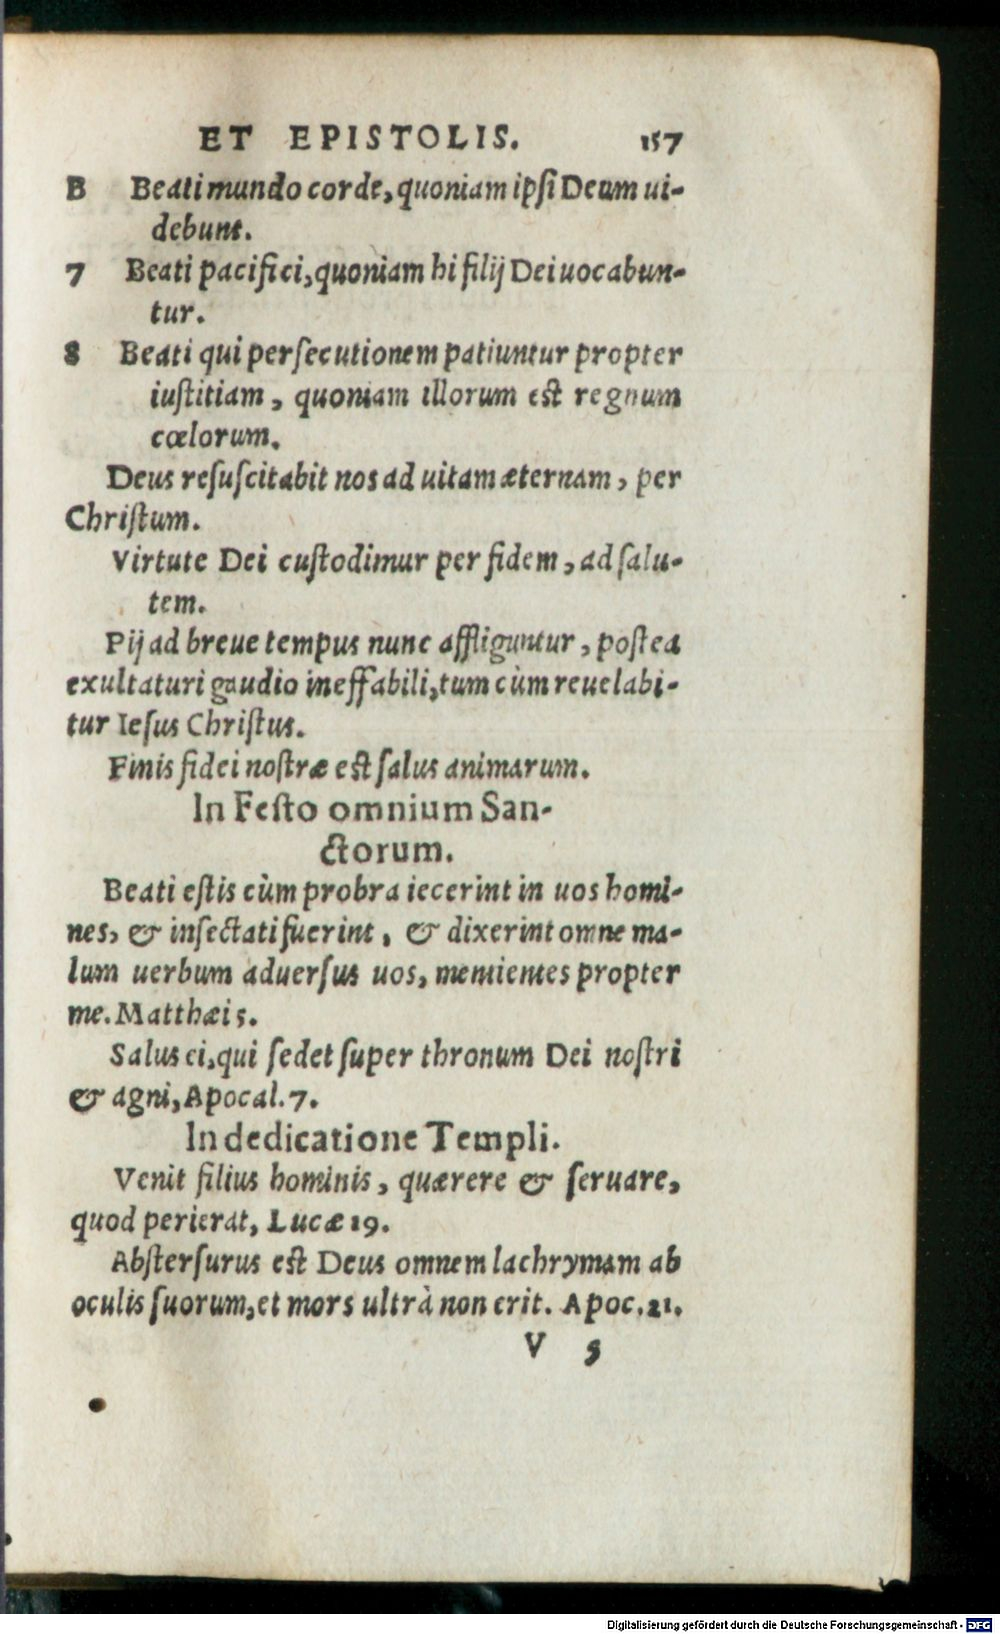 ET EPISTOLIS. 157
B Beati mundo corde, quoniam ipſi Deum ui-
debunt.
7 Beati pacifici, quoniam hi filij Dei uocabun-
tur.
8 Beati qui perſecutionem patiuntur propter
iuſtitiam, quoniam illorum eſt regnum
cœlorum.
Deus reſuſcitabit nos ad uitam æternam, per
Chriſtum.
Virtute Dei cuſtodimur per fidem, ad ſalu-
tem.
Pij ad breue tempus nunc affliguntur, poſtea
exultaturi gaudio ineffabili, tum cùm reuelabi-
tur Ieſus Chriſtus.
Finis fidei noſtræ eſt ſalus animarum.
In Feſto omnium San-
ctorum.
Beati eſtis cùm probra iecerint in uos homi-
nes, & inſectati fuerint, & dixerint omne ma-
lum uerbum aduerſus uos, mentientes propter
me. Matthæi 5.
Salus ei, qui ſedet ſuper thronum Dei noſtri
& agni, Apocal. 7.
In dedicatione Templi.
Venit filius hominis, quærere & ſeruare,
quod perierat, Lucæ 19.
Abſterſurus eſt Deus omnem lachrymam ab
oculis ſuorum, et mors ultrà non erit. Apoc. 21.
V 5
Digitalisierung gefördert durch die Deutsche Forschungsgemeinschaft - DFG